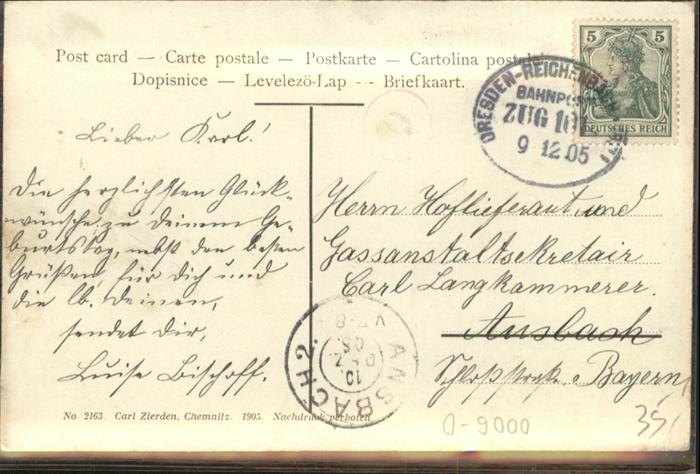 Post card — Carte postale — Postkarte — Cartolina postale
Dopisnice — Levelezö-Lap — Briefkaart.
5 5
DEUTSCHES REICH
DRESDEN-REICHENBACH
BAHNPOST
ZUG 10
9 12 05
Lieber Karl!
Die herzlichsten Glück-
wünsche zu deinem Ge-
burtstag, nebst den besten
Grüßen für dich und
die lb. deinen,
sendet dir,
Luise Bischoff.
Herrn Hoflieferant und
Gassanstaltsekretair
Carl Langkammerer.
Ansbach
Schloßstraße Bayern
ANSBACH 2.
10
No 2163. Carl Zierden, Chemnitz. 1905. Nachdruck verboten
0-9000
35,